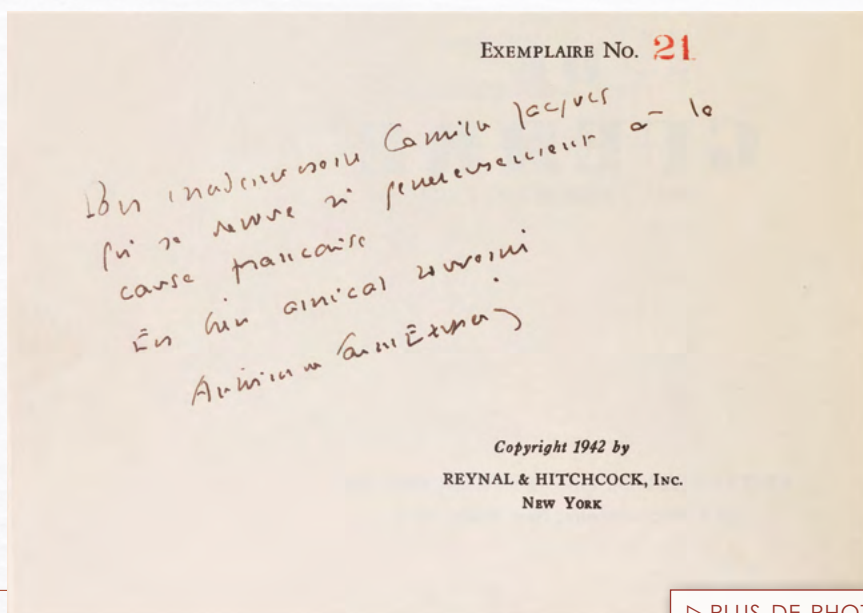 EXEMPLAIRE No. 21
Pour mademoiselle Camille Jacques
qui se dévoue si généreusement à la
cause française
En bien amical souvenir
Antoine de Saint Exupéry
Copyright 1942 by
REYNAL & HITCHCOCK, INC.
NEW YORK
▷ PLUS DE PHOT